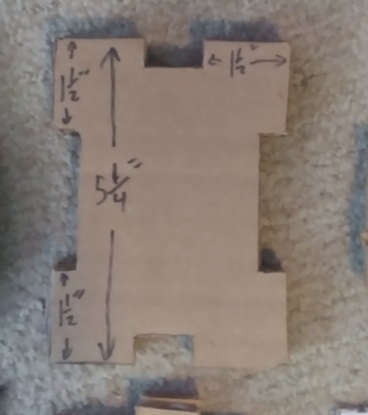 1 1/2"
1 1/2"
5 1/4"
1 1/2"